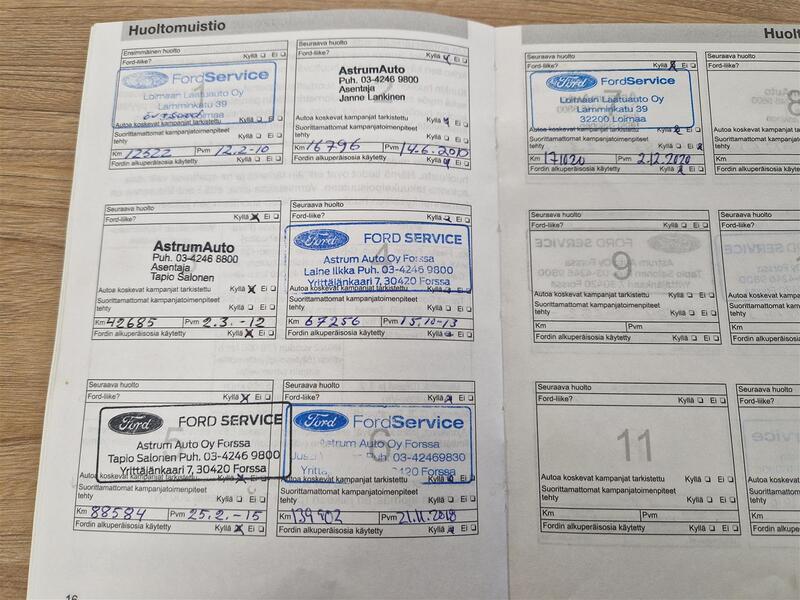 Huoltomuistio
Ensimmäinen huolto
Ford-liike? Kyllä Ei
1
Ford FordService
Loimaan Laatuauto Oy
Lamminkatu 39
Loimaa
Autoa koskevat kampanjat tarkistettu Kyllä Ei
Suorittamattomat kampanjatoimenpiteet
tehty Kyllä Ei
Km 12522 Pvm 12.2-10
Fordin alkuperäisosia käytetty Kyllä Ei
Seuraava huolto
Ford-liike? Kyllä Ei
AstrumAuto
Puh. 03-4246 9800
Asentaja
Janne Lankinen
Autoa koskevat kampanjat tarkistettu Kyllä Ei
Suorittamattomat kampanjatoimenpiteet
tehty Kyllä Ei
Km 16796 Pvm 14.6.2010
Fordin alkuperäisosia käytetty Kyllä Ei
Seuraava huolto
Ford-liike? Kyllä Ei
AstrumAuto
Puh. 03-4246 8800
Asentaja
Tapio Salonen
Autoa koskevat kampanjat tarkistettu Kyllä Ei
Suorittamattomat kampanjatoimenpiteet
tehty Kyllä Ei
Km 42685 Pvm 2.3.-12
Fordin alkuperäisosia käytetty Kyllä Ei
Seuraava huolto
Ford-liike? Kyllä Ei
4
Ford FORD SERVICE
Astrum Auto Oy Forssa
Laine Ilkka Puh. 03-4246 9800
Yrittäjänkaari 7, 30420 Forssa
Autoa koskevat kampanjat tarkistettu Kyllä Ei
Suorittamattomat kampanjatoimenpiteet
tehty Kyllä Ei
Km 67256 Pvm 15.10-13
Fordin alkuperäisosia käytetty Kyllä Ei
Seuraava huolto
Ford-liike? Kyllä Ei
5
Ford FORD SERVICE
Astrum Auto Oy Forssa
Tapio Salonen Puh. 03-4246 9800
Yrittäjänkaari 7, 30420 Forssa
Autoa koskevat kampanjat tarkistettu Kyllä Ei
Suorittamattomat kampanjatoimenpiteet
tehty Kyllä Ei
Km 88584 Pvm 25.2.-15
Fordin alkuperäisosia käytetty Kyllä Ei
Seuraava huolto
Ford-liike? Kyllä Ei
6
Ford FordService
Astrum Auto Oy Forssa
Puh. 03-42469830
7, 30420 Forssa
Autoa koskevat kampanjat tarkistettu Kyllä Ei
Suorittamattomat kampanjatoimenpiteet
tehty Kyllä Ei
Km 139902 Pvm 21.11.2018
Fordin alkuperäisosia käytetty Kyllä Ei
16
Seuraava huolto
Ford-liike? Kyllä Ei
7
Ford FordService
Loimaan Laatuauto Oy
Lamminkatu 39
32200 Loimaa
Autoa koskevat kampanjat tarkistettu Kyllä Ei
Suorittamattomat kampanjatoimenpiteet
tehty Kyllä Ei
Km 171020 Pvm 2.12.2020
Fordin alkuperäisosia käytetty Kyllä Ei
Seuraava huolto
Ford-liike? Kyllä Ei
9
Autoa koskevat kampanjat tarkistettu Kyllä Ei
Suorittamattomat kampanjatoimenpiteet
tehty Kyllä Ei
Km Pvm
Fordin alkuperäisosia käytetty Kyllä Ei
Seuraava huolto
Ford-liike? Kyllä Ei
11
Autoa koskevat kampanjat tarkistettu Kyllä Ei
Suorittamattomat kampanjatoimenpiteet
tehty Kyllä Ei
Km Pvm
Fordin alkuperäisosia käytetty Kyllä Ei